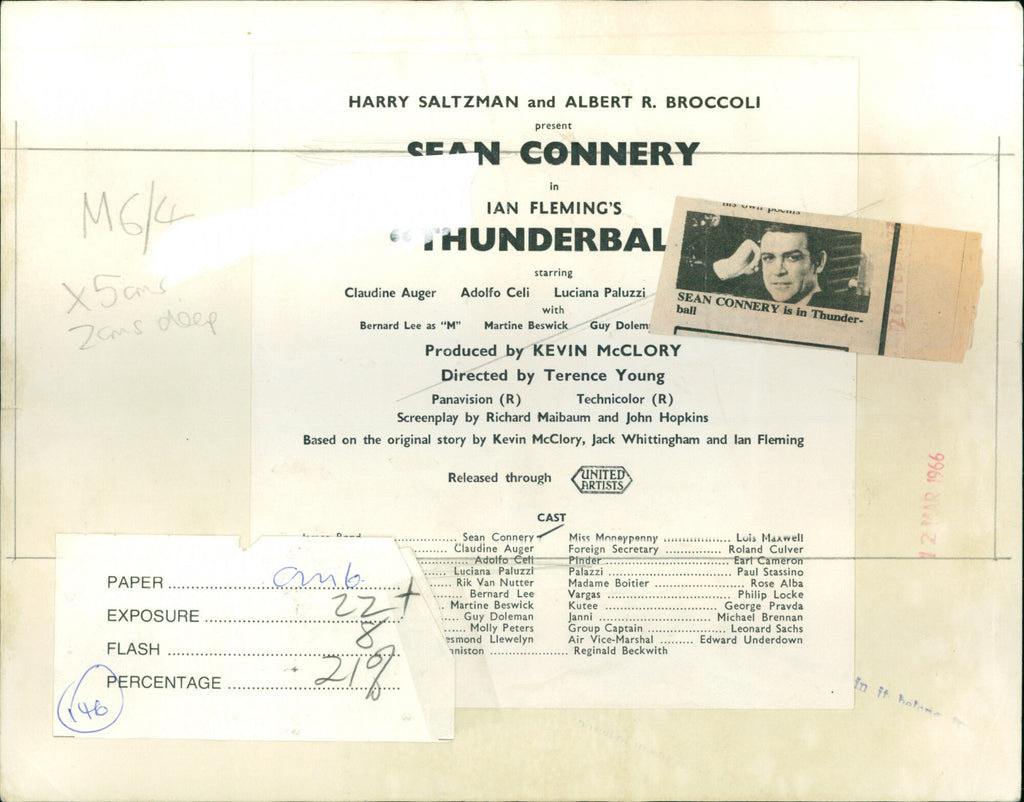 HARRY SALTZMAN and ALBERT R. BROCCOLI
present
SEAN CONNERY
in
IAN FLEMING'S
"THUNDERBAL
starring
Claudine Auger Adolfo Celi Luciana Paluzzi
with
Bernard Lee as "M" Martine Beswick Guy Dolem
Produced by KEVIN McCLORY
Directed by Terence Young
Panavision (R) Technicolor (R)
Screenplay by Richard Maibaum and John Hopkins
Based on the original story by Kevin McClory, Jack Whittingham and Ian Fleming
Released through UNITED ARTISTS
M6/4
x 5cms
2cms deep
his own poems
SEAN CONNERY is in Thunder-
ball
12 MAR 1966
CAST
James Bond Sean Connery
Claudine Auger
Adolfo Celi
Luciana Paluzzi
Rik Van Nutter
Bernard Lee
Martine Beswick
Guy Doleman
Molly Peters
esmond Llewelyn
nniston Reginald Beckwith
Miss Moneypenny Lois Maxwell
Foreign Secretary Roland Culver
Pinder Earl Cameron
Palazzi Paul Stassino
Madame Boitier Rose Alba
Vargas Philip Locke
Kutee George Pravda
Janni Michael Brennan
Group Captain Leonard Sachs
Air Vice-Marshal Edward Underdown
PAPER
EXPOSURE 22+
FLASH 8
PERCENTAGE 21%
146